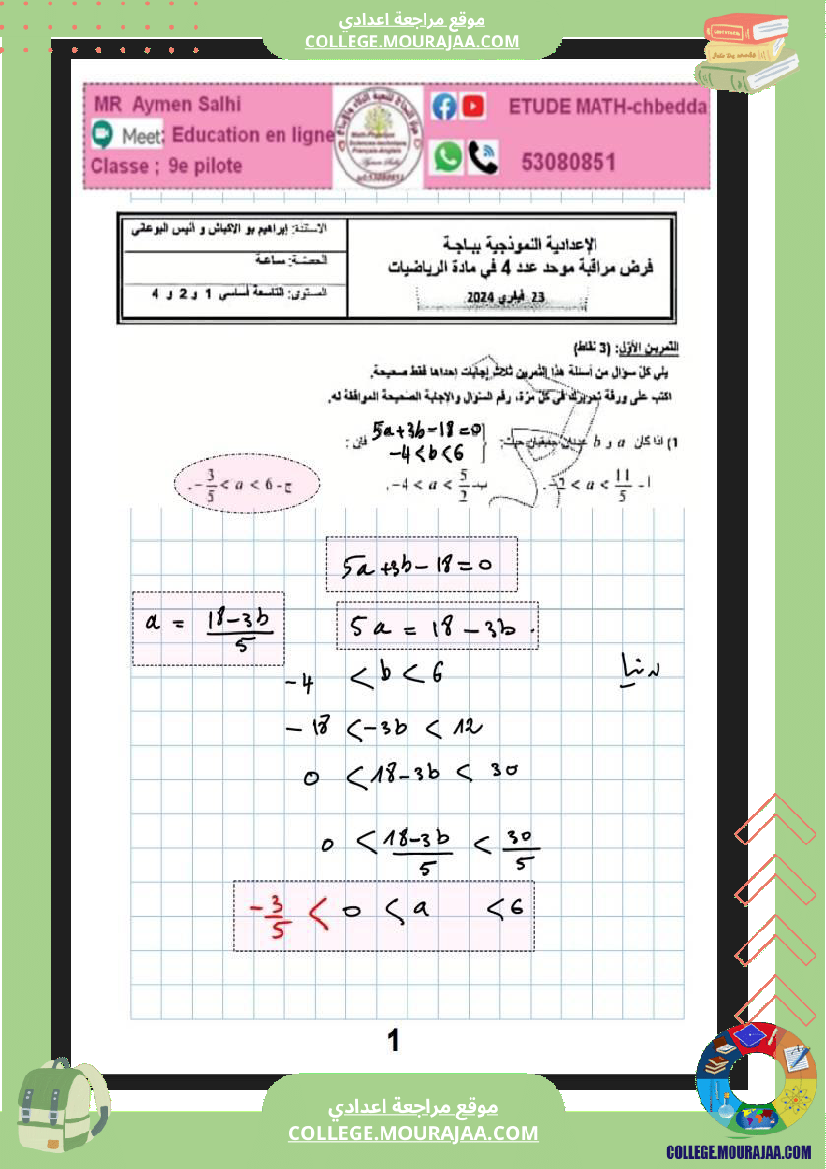 موقع مراجعة اعدادي
COLLEGE.MOURAJAA.COM
MR Aymen Salhi
Meet: Education en ligne
Classe ; 9e pilote
ETUDE MATH-chbedda
53080851
الإعدادية النموذجية بباجة
فرض مراقبة موحد عدد 4 في مادة الرياضيات
23 فيفري 2024
الاستاذة: إبراهيم بو الاكباش و أنيس البوعاني
الحصة: ساعة
المستوى: التاسعة أساسي 1 و 2 و 4
التمرين الأول: (3 نقاط)
يلي كل سؤال من أسئلة هذا التمرين ثلاث إجابات إحداها فقط صحيحة.
اكتب على ورقة تحريرك في كل مرة، رقم السؤال والإجابة الصحيحة الموافقة له.
1) اذا كان a و b عددان حقيقيان حيث: 5a+3b-18=0
-4<b<6 فإن:
أ- < a < 11/5 ب- -4 < a < 5/2. ج- -3/5 < a < 6.
5a+3b-18=0
a = (18-3b)/5
5a = 18-3b.
لدينا
-4 < b < 6
-18 < -3b < 12
0 < 18-3b < 30
0 < (18-3b)/5 < 30/5
-3/5 < 0 < a < 6
1
موقع مراجعة اعدادي
COLLEGE.MOURAJAA.COM
COLLEGE.MOURAJAA.COM